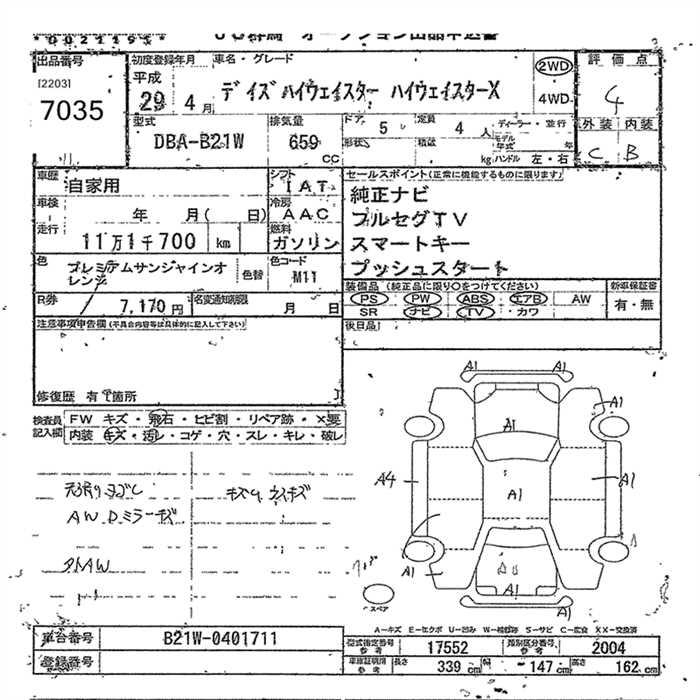 *0021195*
出品番号
[2203]
7035
初度登録年月
車名・グレード
平成
29 4月
デイズハイウェイスター ハイウェイスターX
2WD
4WD
評価点
4
外装 内装
C B
型式
DBA-B21W
排気量
659
cc
ドア
5
定員
4人
形状
積載
kg
ディーラー・並行
モデル年式
年
ハンドル 左・右
車歴
自家用
シフト
IAT
車検
年 月( 日)
冷房
AAC
走行
11万1千700 km
燃料
ガソリン
色
プレミアムサンシャインオレンジ
色替
色コード
M11
R券
7,170円
名変通知期限
月 日
セールスポイント(正常に機能するものに限ります)
純正ナビ
フルセグTV
スマートキー
プッシュスタート
装備品 (純正品に限り○をつけてください)
PS PW ABS エアB AW
SR ナビ TV カワ
新車保証書
有・無
後日品
注意事項申告欄(不具合内容等は具体的に記入して下さい)
修復歴 有 箇所
検査員記入欄
FW キズ・飛石・ヒビ割・リペア跡・X要
内装 キズ・汚レ・コゲ・穴・スレ・キレ・破レ
AW.D.ミラーキズ
A1 A1
A1
A1
A4
A1
A1
A1
A1
A1
スペア
A-キズ E-エクボ U-凹み W-補修跡 S-サビ C-腐食 XX-交換済
車台番号
B21W-0401711
登録番号
型式指定番号
参考
17552
類別区分番号
参考
2004
車庫証明用
参考
長さ
339 cm
幅
147 cm
高さ
162 cm